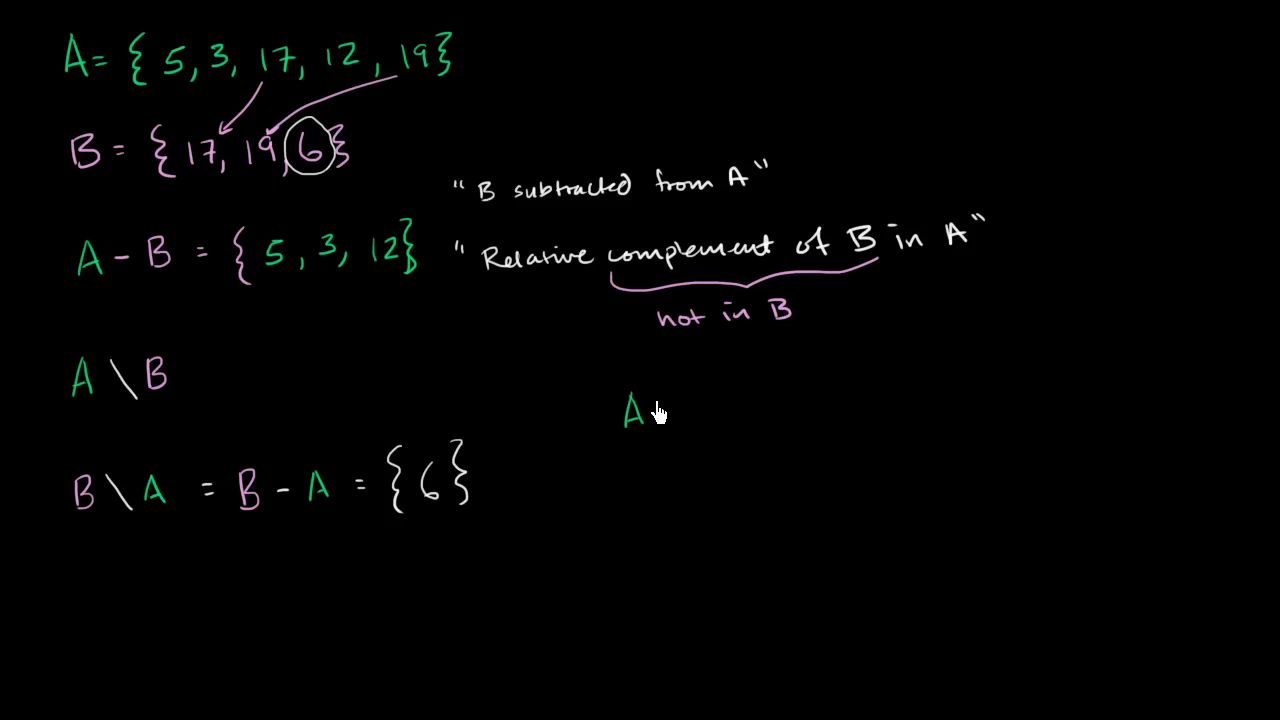 A = { 5, 3, 17, 12, 19}
B = { 17, 19, 6}
"B subtracted from A"
A - B = { 5, 3, 12}
"Relative complement of B in A"
not in B
A \ B
A
B \ A = B - A = {6}